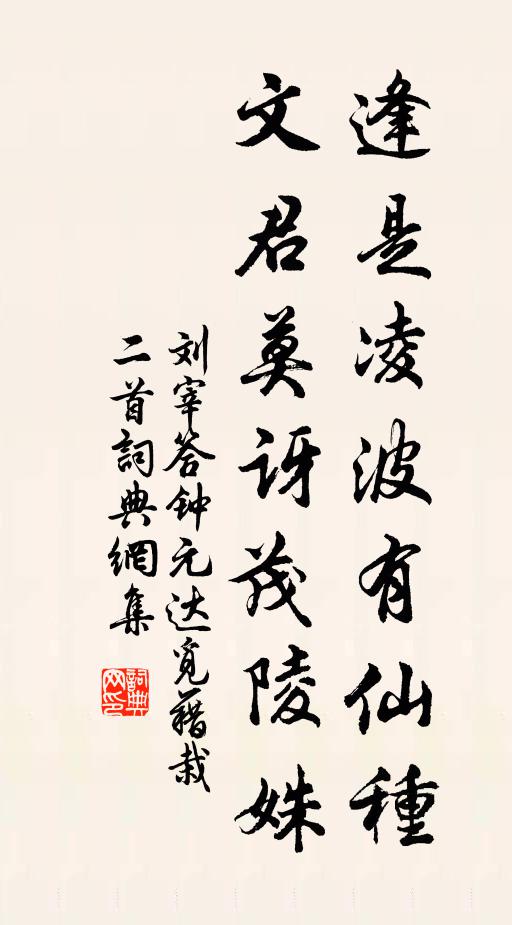 逢是凌波有仙種
文君莫訝茂陵姝
刘宰答钟元达觅藉栽
二首詞典網集
詞典网印